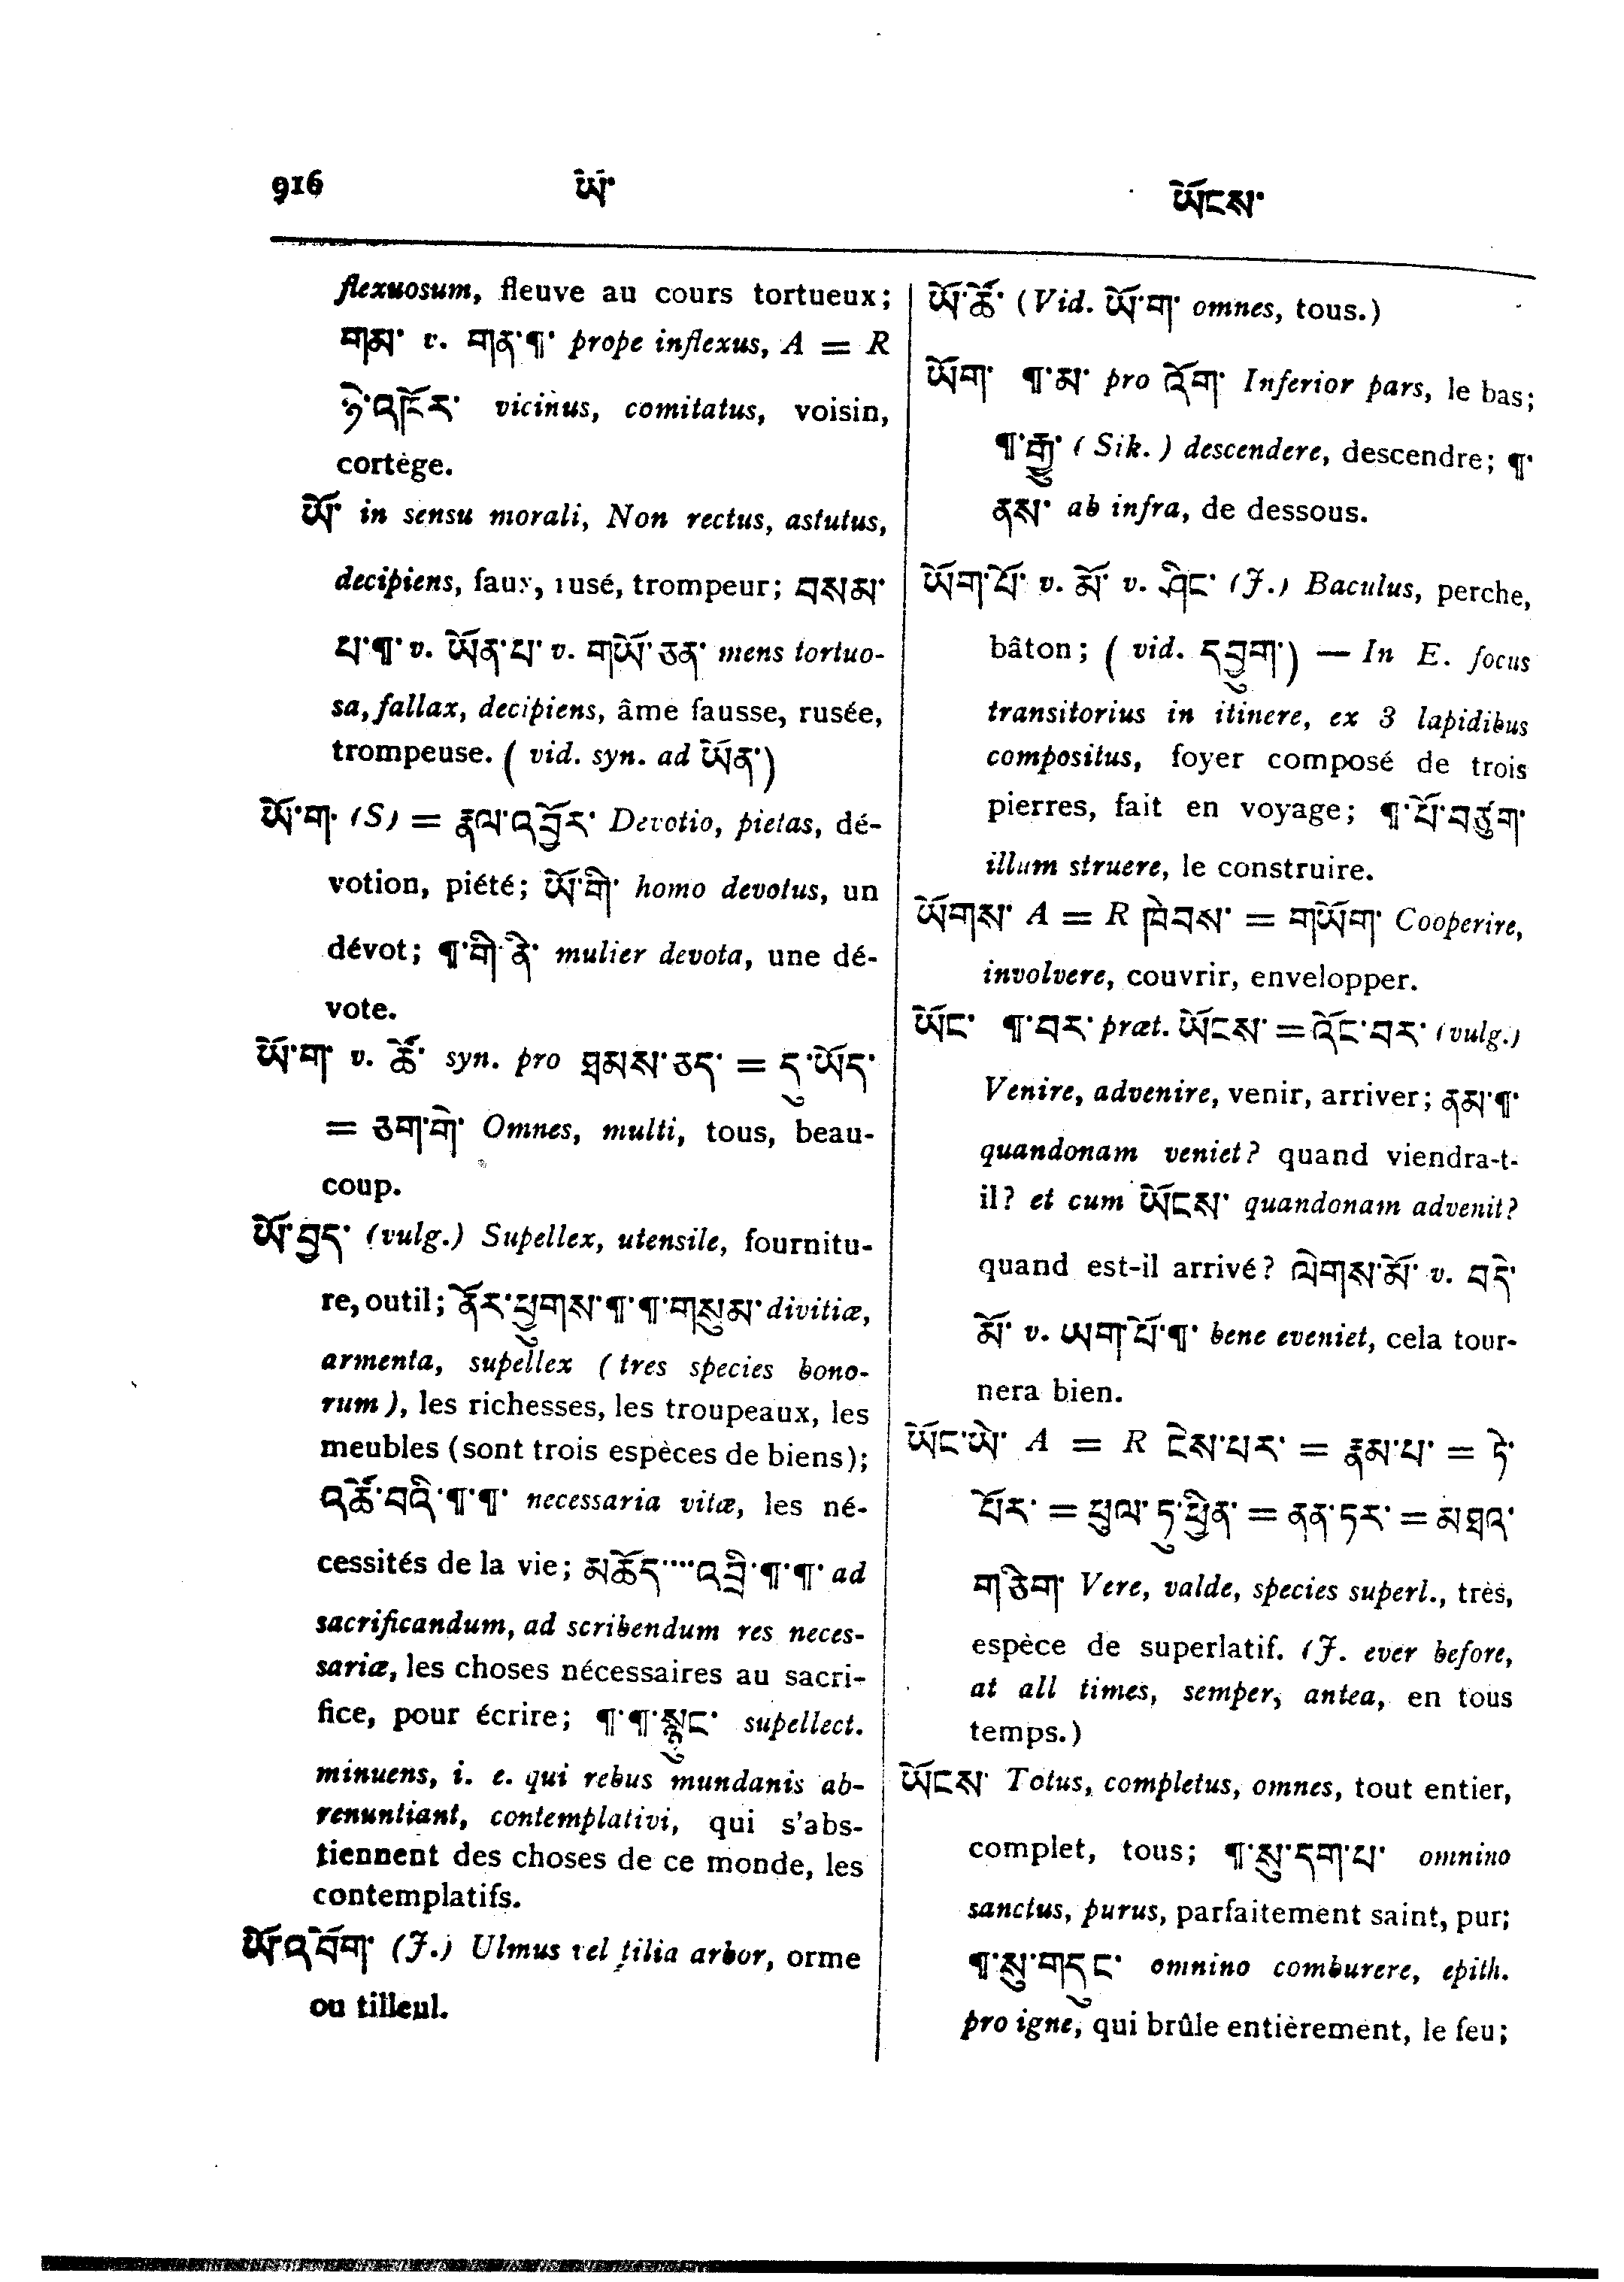 916 ཡོ་ ཡོངས་
flexuosum, fleuve au cours tortueux;
གམ་ v. གན་¶་ prope inflexus, A = R
ཉེ་འཁོར་ vicinus, comitatus, voisin,
cortège.
ཡོ་ in sensu morali, Non rectus, astutus,
decipiens, faux, rusé, trompeur; བསམ་
པ་¶་ v. ཡོན་པ་ v. གཡོ་ཅན་ mens tortuo-
sa, fallax, decipiens, âme fausse, rusée,
trompeuse. (vid. syn. ad ཡོན་)
ཡོ་ག་ (S) = རྣལ་འབྱོར་ Devotio, pietas, dé-
votion, piété; ཡོ་གི་ homo devotus, un
dévot; ¶་གི་ནི་ mulier devota, une dé-
vote.
ཡོ་ག་ v. ཚོ་ syn. pro ཐམས་ཅད་ = དུ་ཡོད་
= ཅག་གེ་ Omnes, multi, tous, beau-
coup.
ཡོ་བྱད་ (vulg.) Supellex, utensile, fournitu-
re, outil; ནོར་ཕྱུགས་¶་¶་གསུམ་ divitiæ,
armenta, supellex (tres species bono-
rum), les richesses, les troupeaux, les
meubles (sont trois espèces de biens);
འཚོ་བའི་¶་¶་ necessaria vitæ, les né-
cessités de la vie; མཆོད་····འབྲི་¶་¶་ ad
sacrificandum, ad scribendum res neces-
sariæ, les choses nécessaires au sacri-
fice, pour écrire; ¶་¶་སྙུང་ supellect.
minuens, i. e. qui rebus mundanis ab-
renuntiant, contemplativi, qui s'abs-
tiennent des choses de ce monde, les
contemplatifs.
ཡོ་འབོག་ (J.) Ulmus vel tilia arbor, orme
ou tilleul.
ཡོ་ཚོ་ (Vid. ཡོ་ག་ omnes, tous.)
ཡོག་ ¶་མ་ pro འོག་ Inferior pars, le bas;
¶་རྒྱུ་ (Sik.) descendere, descendre; ¶་
ནས་ ab infra, de dessous.
ཡོག་པོ་ v. མོ་ v. ཤིང་ (J.) Baculus, perche,
bâton; (vid. དབྱུག་) — In E. focus
transitorius in itinere, ex 3 lapidibus
compositus, foyer composé de trois
pierres, fait en voyage; ¶་པོ་བཙུག་
illum struere, le construire.
ཡོགས་ A = R ཁེབས་ = གཡོག་ Cooperire,
involvere, couvrir, envelopper.
ཡོང་ ¶་བར་ præt. ཡོངས་ = འོང་བར་ (vulg.)
Venire, advenire, venir, arriver; ནམ་¶་
quandonam veniet? quand viendra-t-
il? et cum ཡོངས་ quandonam advenit?
quand est-il arrivé? ལེགས་མོ་ v. བདེ་
མོ་ v. ཡག་པོ་¶་ bene eveniet, cela tour-
nera bien.
ཡོང་ཡེ་ A = R ངེས་པར་ = རྣམ་པ་ = ཏེ་
པོར་ = ཕུལ་ཏུ་ཕྱིན་ = ནན་ཏར་ = མཐའ་
གཅིག་ Vere, valde, species superl., très,
espèce de superlatif. (J. ever before,
at all times, semper, antea, en tous
temps.)
ཡོངས་ Totus, completus, omnes, tout entier,
complet, tous; ¶་སུ་དག་པ་ omnino
sanctus, purus, parfaitement saint, pur;
¶་སུ་གདུང་ omnino comburere, epith.
pro igne, qui brûle entièrement, le feu;